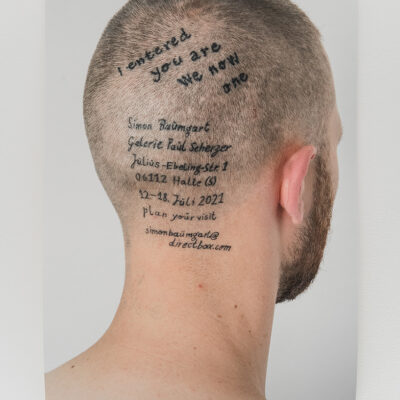 I entered
you are
we now
one
Simon Baumgart
Galerie Paul Scherzer
Julius-Ebeling-Str. 1
06112 Halle (S)
12.-18. Juli 2021
plan your visit
simonbaumgart@
directbox.com